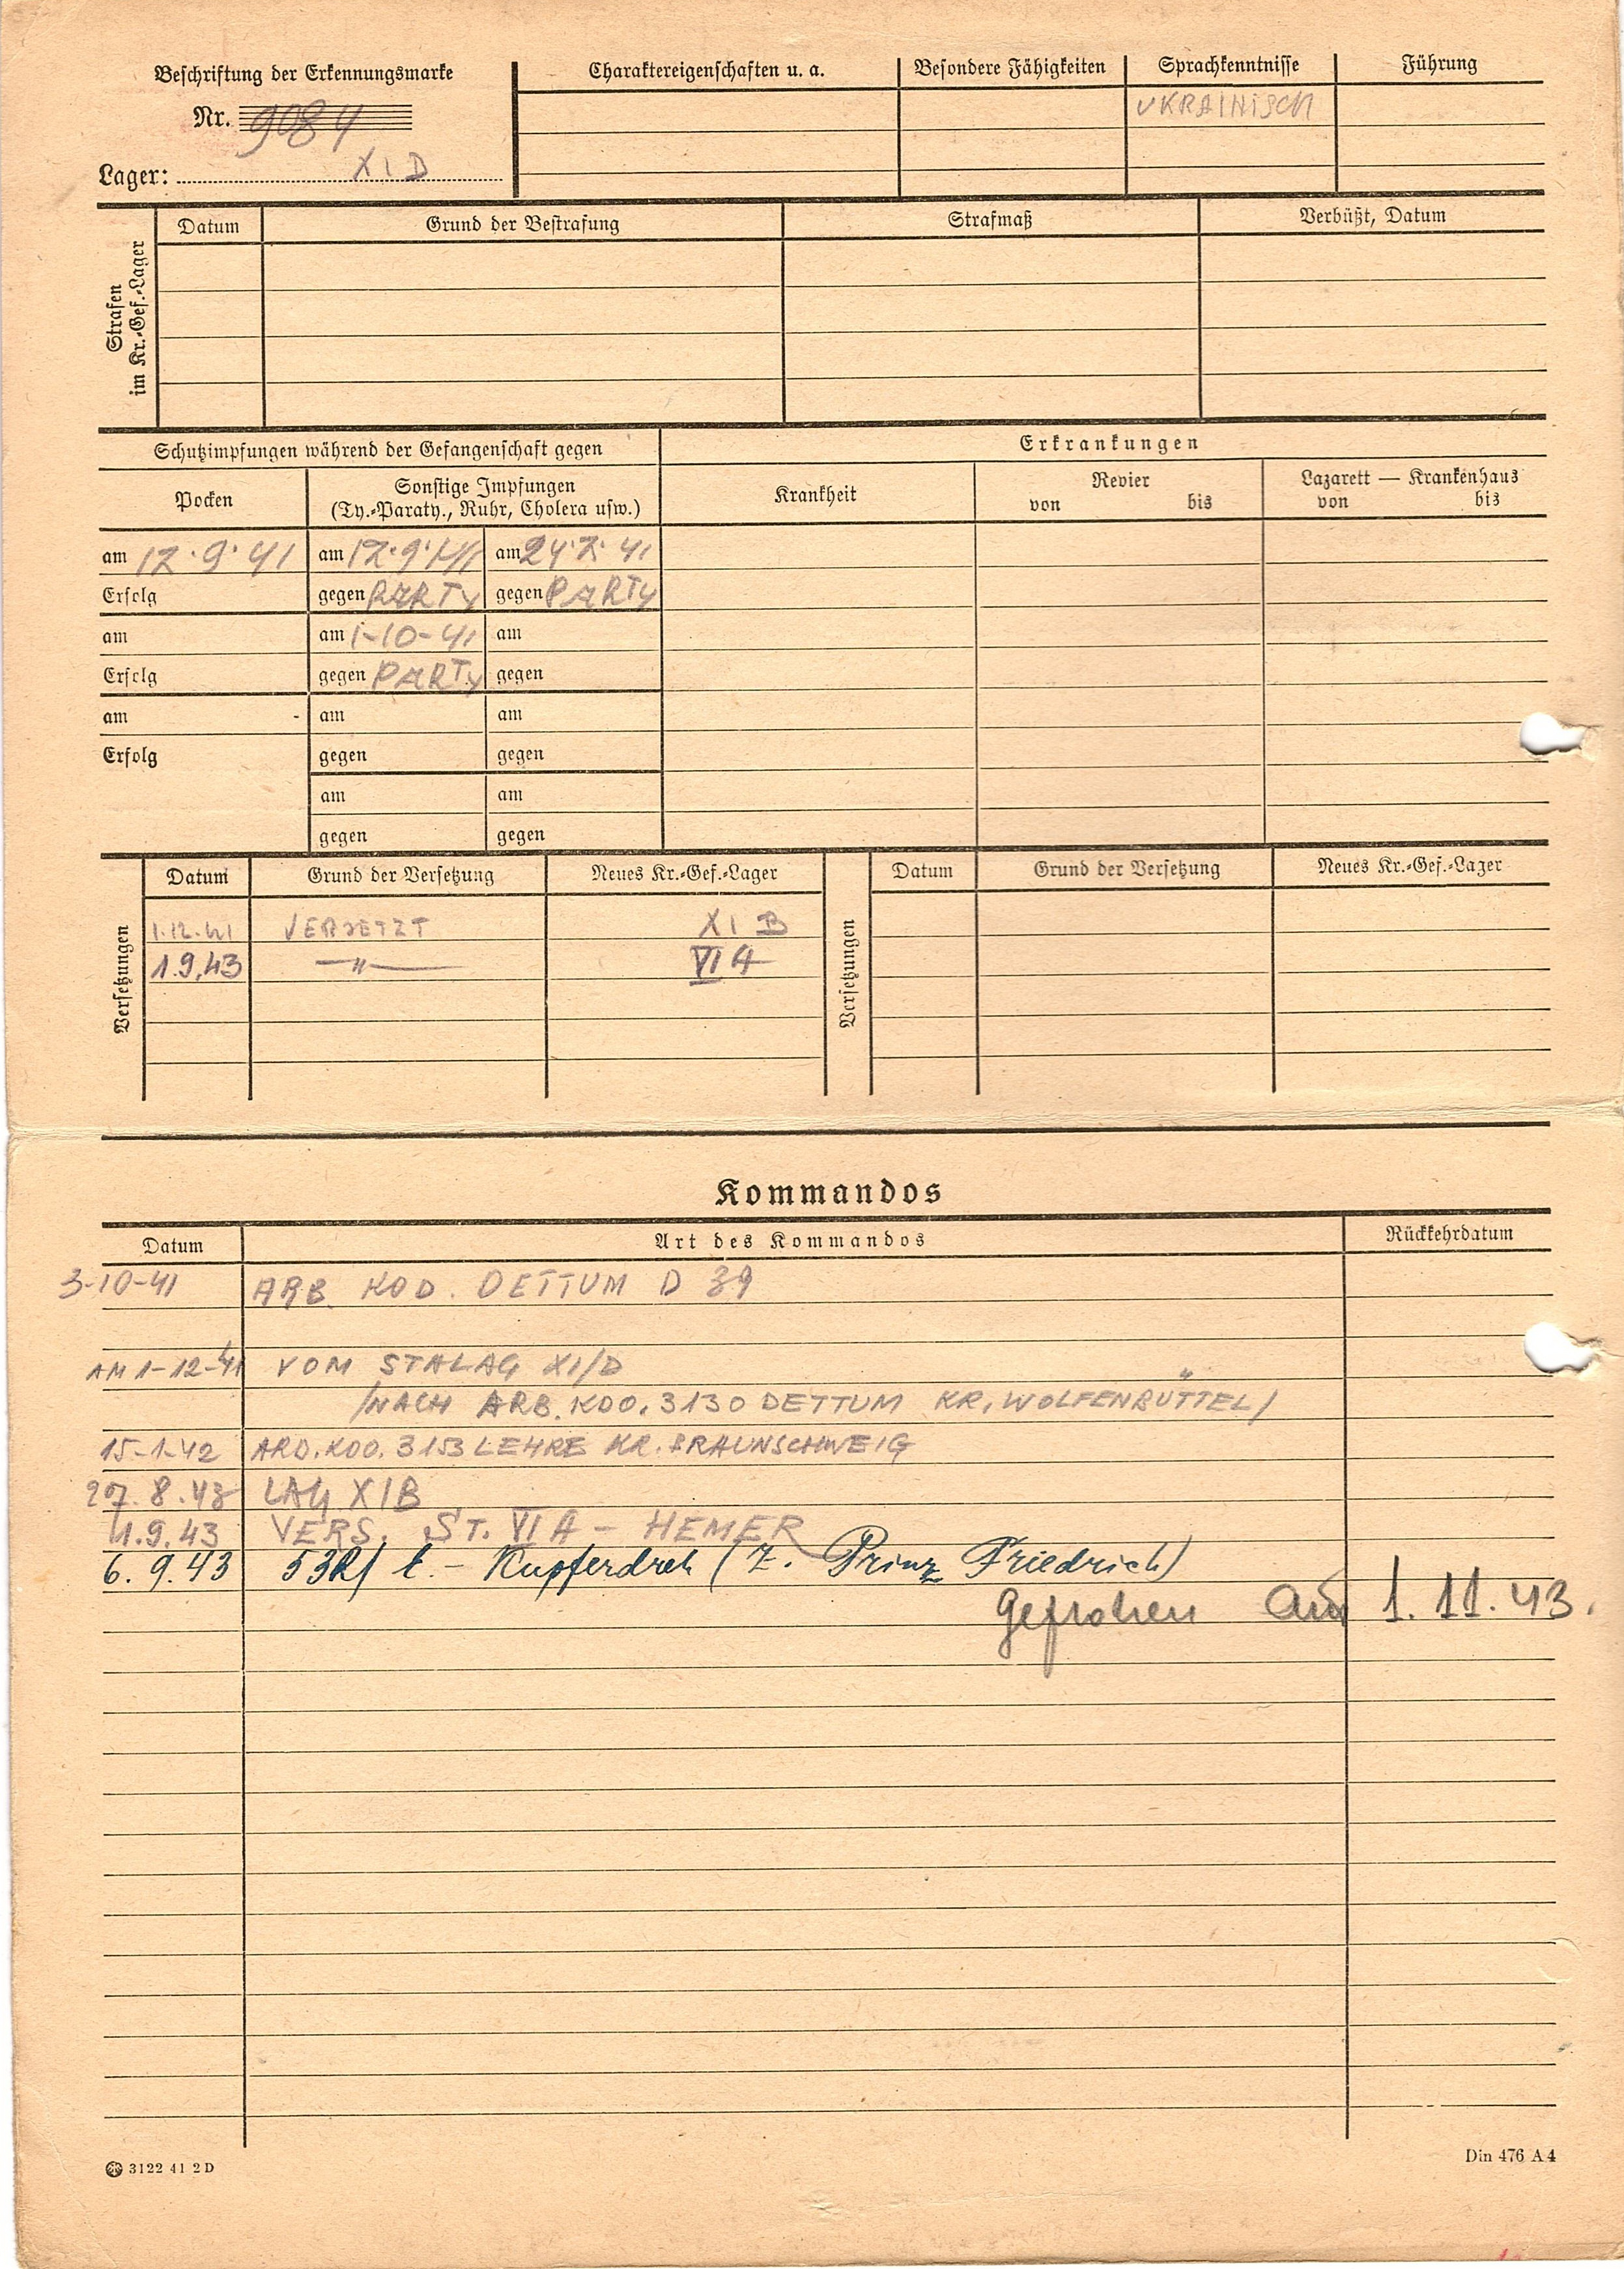 Beschriftung der Erkennungsmarke
Nr. 9084
Lager: XI D
Charaktereigenschaften u. a.
Besondere Fähigkeiten
Sprachkenntnisse
UKRAINISCH
Führung
Strafen
im Kr.-Gef.-Lager
Datum
Grund der Bestrafung
Strafmaß
Verbüßt, Datum
Schutzimpfungen während der Gefangenschaft gegen
Erkrankungen
Pocken
Sonstige Impfungen
(Ty.-Paraty., Ruhr, Cholera usw.)
Krankheit
Revier
von bis
Lazarett — Krankenhaus
von bis
am 12.9.41 am 12.9.41 am 24. 41
Erfolg gegen PARTY gegen PARTY
am am 1-10-41 am
Erfolg gegen PARTY gegen
am am am
Erfolg gegen gegen
am am
gegen gegen
Versetzungen
Datum Grund der Versetzung Neues Kr.-Gef.-Lager
1.12.41 VERSETZT XI B
1.9.43 —"— VI A
Versetzungen
Datum Grund der Versetzung Neues Kr.-Gef.-Lager
Kommandos
Datum Art des Kommandos Rückkehrdatum
3-10-41 ARB. KOD. DETTUM D 39
AM 1-12-41 VOM STALAG XI/D
/NACH ARB. KDO. 3130 DETTUM KR. WOLFENBÜTTEL/
15-1-42 ARD. KDO. 3153 LEHRE KR. BRAUNSCHWEIG
27.8.43 LAG XIB
1.9.43 VERS. ST. VI A - HEMER
6.9.43 53R/ E.- Kupferdreh (Z. Prinz Friedrich)
Geflohen am 1.11.43.
3122 41 2 D
Din 476 A 4